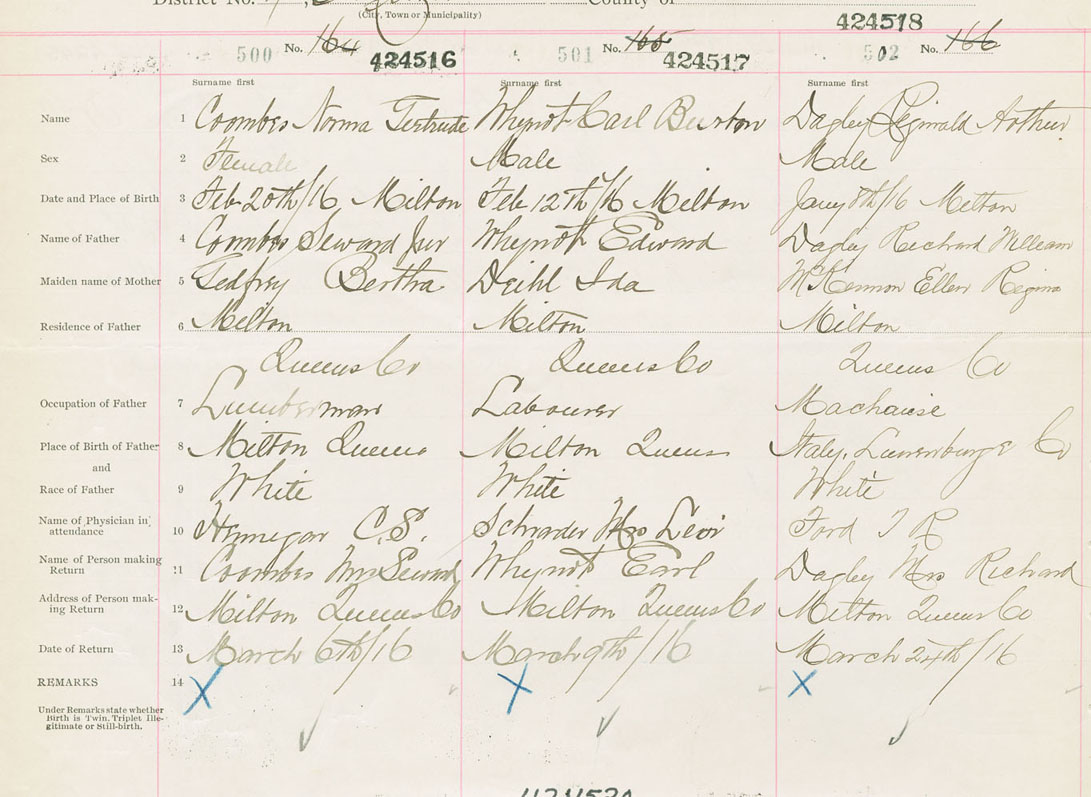 District No. County of
(City, Town or Municipality)
424518
500 No. 164 424516 501 No. 165 424517 502 No. 166
Surname first Surname first Surname first
Name 1 Coombes Norma Gertrude Whynot Carl Burton Dagley Reginald Arthur
Sex 2 Female Male Male
Date and Place of Birth 3 Feb 20th/16 Milton Feb 12th/16 Milton Jany 8th/16 Milton
Name of Father 4 Coombes Seward Jnr Whynot Edward Dagley Richard William
Maiden name of Mother 5 Godfrey Bertha Deihl Ida McKennon Ellen Regina
Residence of Father 6 Milton Milton Milton
Queens Co Queens Co Queens Co
Occupation of Father 7 Lumberman Labourer
Place of Birth of Father 8 Milton Queens Milton Queens Italy, Lunenburg Co
and
Race of Father 9 White White White
Name of Physician in
attendance 10 Hennegar C.S. Schrader Mrs Levi Ford T R
Name of Person making
Return 11 Coombes Mrs Seward Whynot Earl Dagley Mrs Richard
Address of Person mak-
ing Return 12 Milton Queens Co Milton Queens Co Milton Queens Co
Date of Return 13 March 6th/16 March 9th/16 March 24th/16
REMARKS 14 X X X
Under Remarks state whether
Birth is Twin, Triplet Ille-
gitimate or Still-birth.